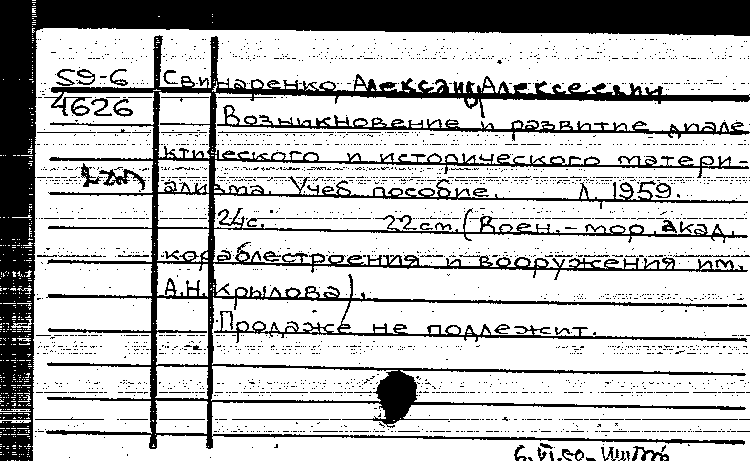 59-6 Свинаренко, Александр Алексеевич
4626 Возникновение и развитие диале
ктического и исторического матери-
ализма. Учеб. пособие. Л, 1959.
24с. 22cm. (Воен.-мор. акад.
кораблестроения и вооружения им.
А.Н. Крылова).
Продаже не подлежит.